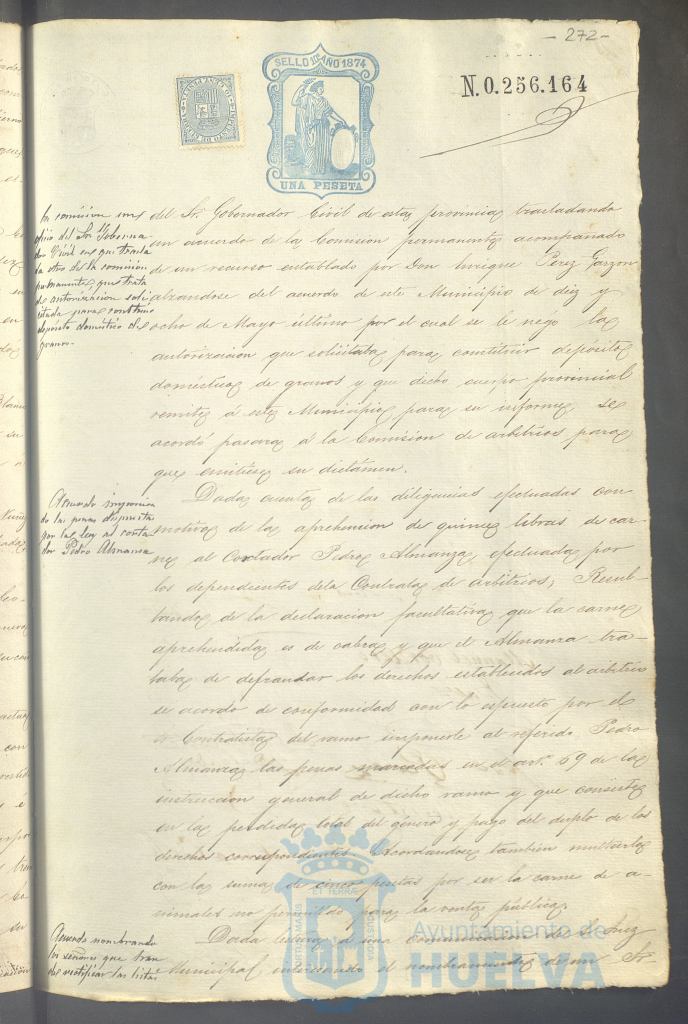 -272-
SELLO 11º AÑO 1874
UNA PESETA
N.0.256.164
del Sr. Gobernador Civil de esta provincia trasladando
un acuerdo de la Comision permanente acompañado
de un recurso entablado por Don Enrique Perez Garzon
alzandose del acuerdo de este Municipio de diez y
ocho de Mayo último por el cual se le negó la
autorizacion que solicitaba para constituir depósito
doméstico de granos y que dicho cuerpo provincial
remite á este Municipio para su informe, se
acordó pasara á la Comision de arbitrios para
que emitiese su dictámen.
Dada cuenta de las diligencias efectuadas con
motivo de la aprehension de quince libras de car-
ne al Cortador Pedro Almanza, efectuada por
los dependientes dela Contrata de arbitrios; Resul-
tando de la declaracion facultativa que la carne
aprehendida es de cabra y que el Almanza tra-
taba de defraudar los derechos establecidos al arbitrio
se acordo de conformidad con lo espuesto por el
Contratista del ramo imponerle al referido Pedro
Almanza las penas marcadas en el art. 69 de la
instruccion general de dicho ramo y que consiste
en la perdida total del género y pago del duplo de los
derechos correspondientes. Acordandose tambien multarle
con la suma de cinco pesetas por ser la carne de a-
nimales no permitido para la venta pública.
Dada lectura á una comunicacion del Juez
Municipal interesando el nombramiento de un Sr.
oficio del Sor Goberna
dor Civil en que traslada
la otra de la comision
permanente que trata
de autorización soli
citada para
depósito doméstico de
granos.
Acuerdo imponien
do las penas dispuesta
por la ley al corta
dor Pedro Almansa
Acuerdo nombrando
los señores que han
de rectificar las listas
Ayuntamiento de
HUELVA